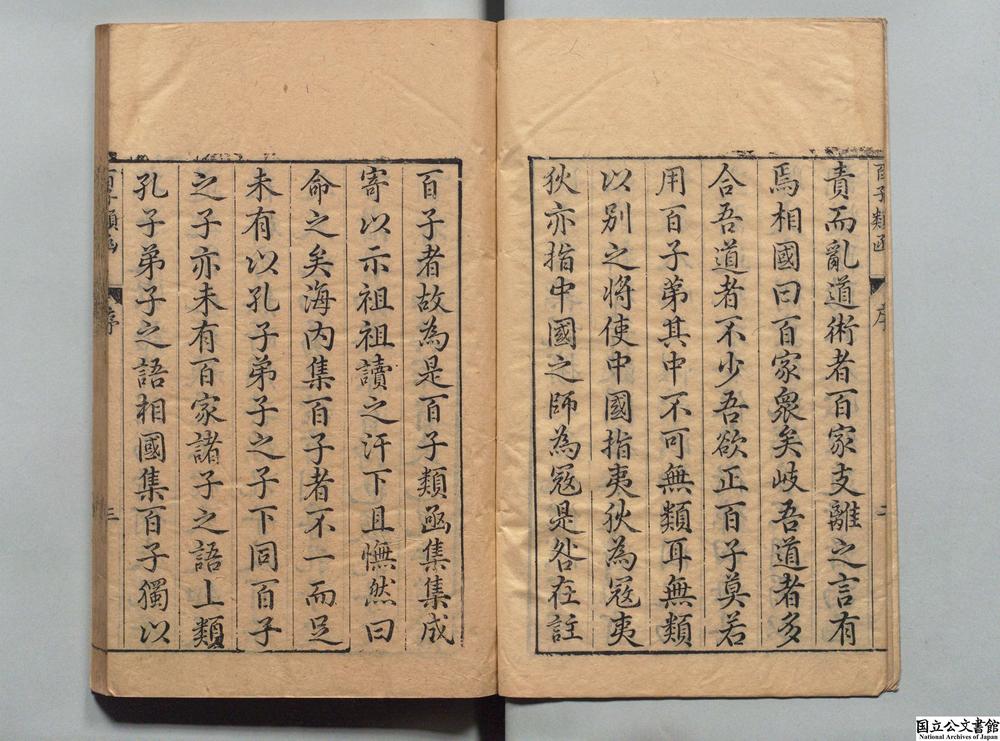 百子類函
序
二
責而亂道術者百家支離之言有
焉相國曰百家衆矣岐吾道者多
合吾道者不少吾欲正百子莫若
用百子弟其中不可無類耳無類
以别之将使中國指夷狄為冦夷
狄亦指中國之師為冦是咎在註
百子者故為是百子類凾集集成
寄以示祖祖讀之汗下且憮然曰
命之矣海内集百子者不一而足
未有以孔子弟子之子下同百子
之子亦未有百家諸子之語上類
孔子弟子之語相國集百子獨以
百子類函
序
二
国立公文書館
National Archives of Japan